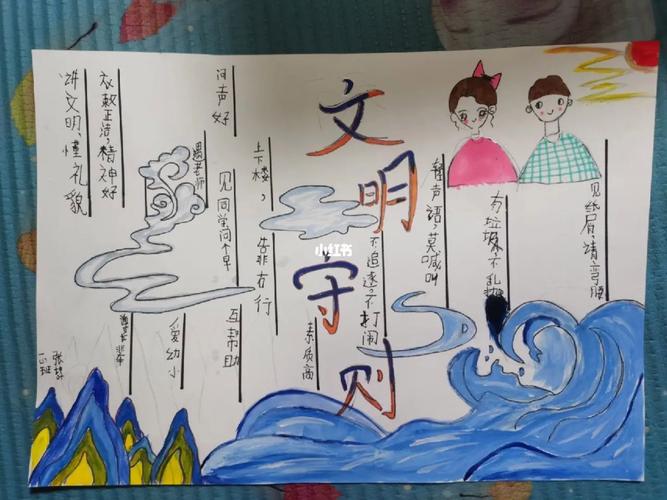 文明守则
讲文明,懂礼貌
衣整洁,精神好
遇老师
问声好
见同学问个早
上下楼,
靠右行
不追逐,不打闹
轻声语,莫喊叫
有垃圾不乱
见纸屑,请弯腰
爱幼小
互帮助
素质高
小红书